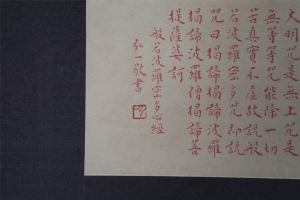 大明咒是無上咒是
無等等咒能除一切
苦真實不虛故說般
若波羅蜜多咒即說
咒曰揭諦揭諦波羅
揭諦波羅僧揭諦菩
提薩婆訶
般若波羅蜜多心經
弘一敬書